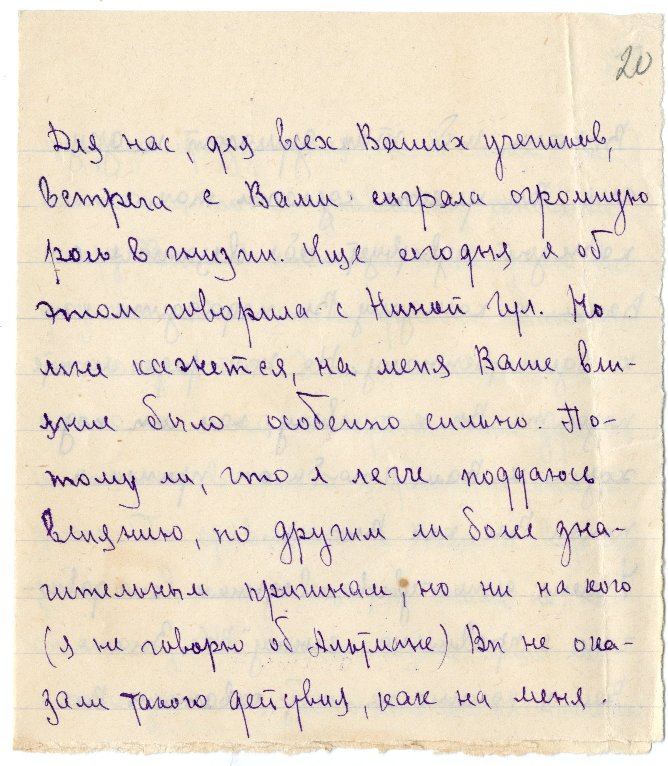 20
Для нас, для всех Ваших учеников,
встреча с Вами сыграла огромную
роль в жизни. Еще сегодня я об
этом говорила с Ниной Гул. Но
мне кажется, на меня Ваше вли-
яние было особенно сильно. По-
тому ли, что я легче поддаюсь
влиянию, по другим ли более зна-
чительным причинам, но ни на кого
(я не говорю об Альтмане) Вы не ока-
зали такого действия, как на меня